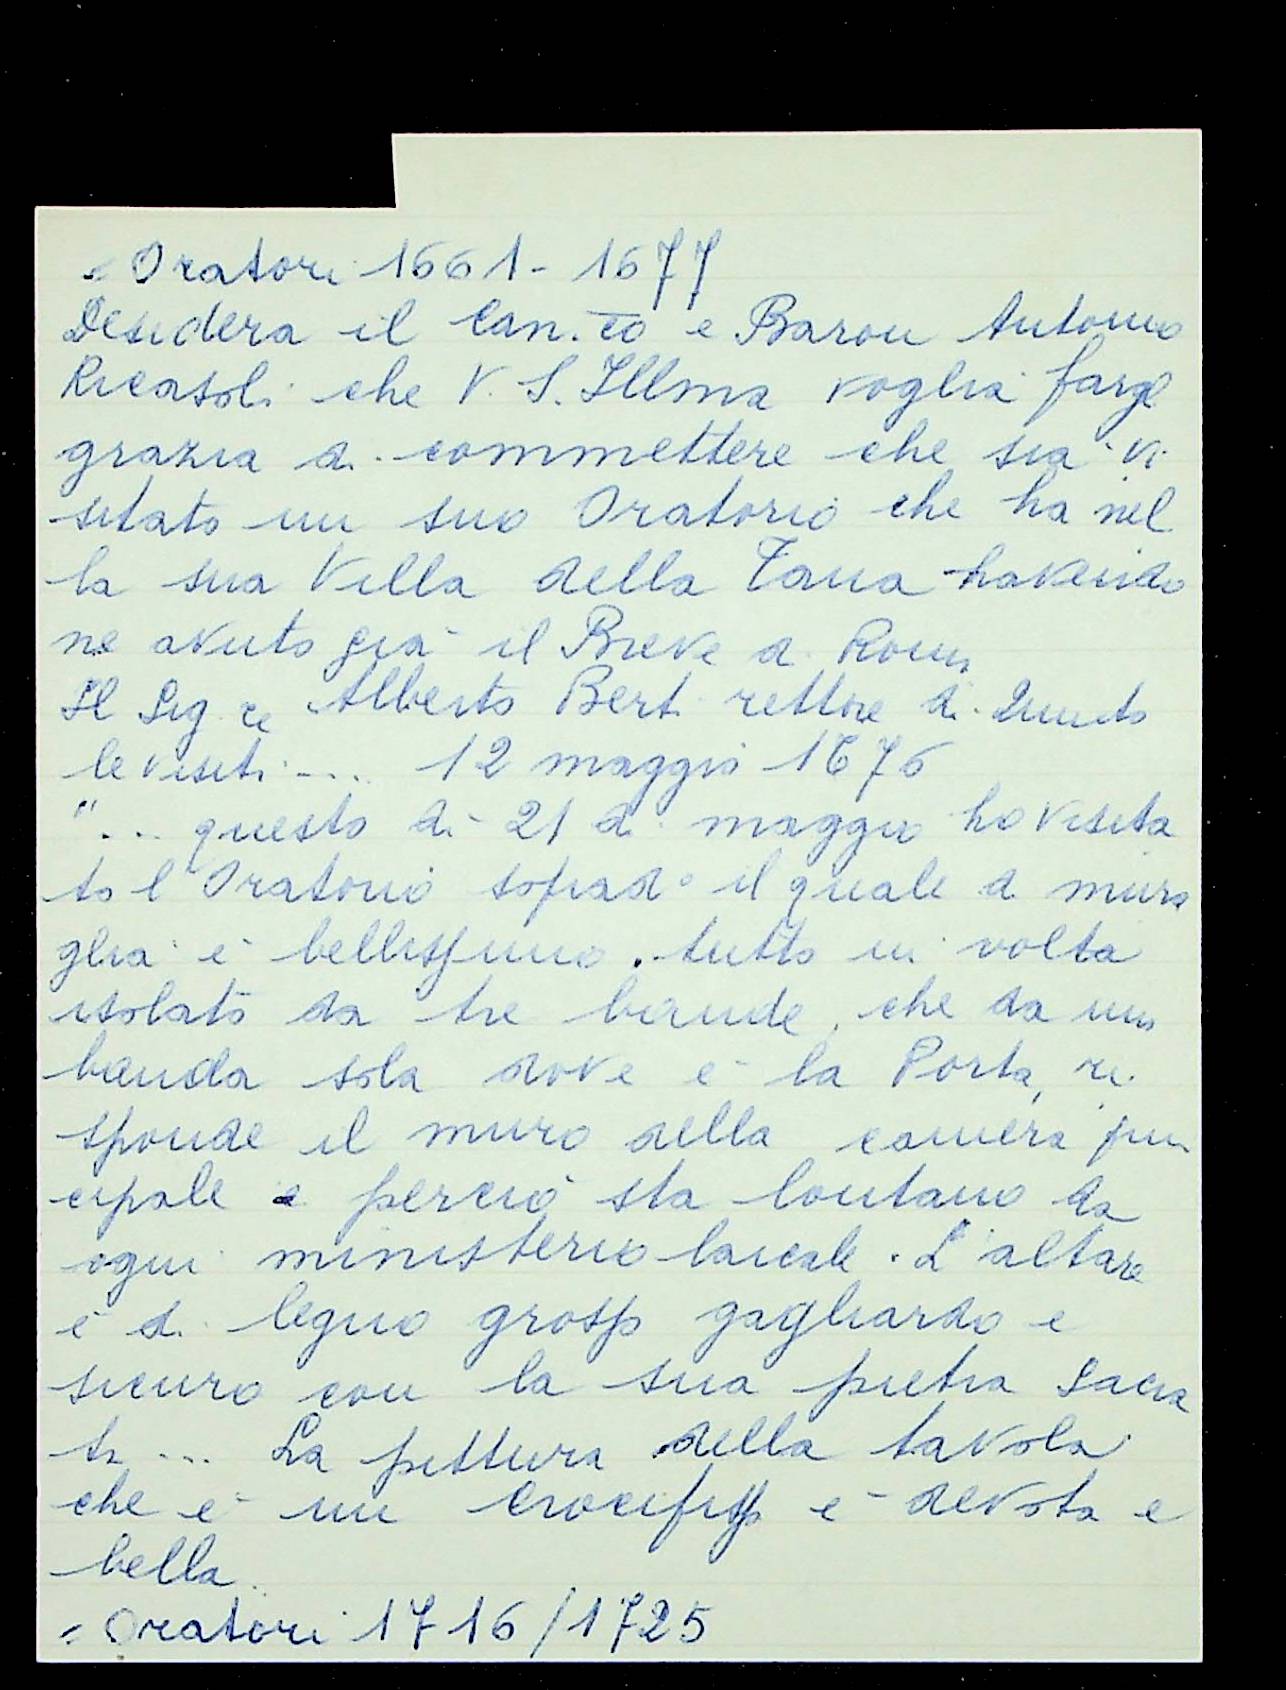 = Oratori 1661 - 1677
Desidera il Can.co e Baron Antonio
Ricasoli che V. S. Illma voglia fargl
grazia di commettere che sia vi
sitato un suo Oratorio che ha nel
la sua Villa della Tana havendo
ne avuto già il Breve di Roma
Il Sig re Alberto Berti rettore di Quinto
le visiti .... 12 maggio 1676
"... questo dì 21 di maggio ho visita
to l'Oratorio soprad° il quale di mura
glia è bellissimo. tutto in volta
isolato da tre bande, che da una
banda sola dove è la Porta, ri
sponde il muro della camera prin
cipale e perciò sta lontano da
ogni ministerio laicale. L'altare
è di legno grosso gagliardo e
sicuro con la sua pietra sacra
ta ... La pittura della tavola
che è un Crocifisso è devota e
bella.
= Oratori 1716/1725